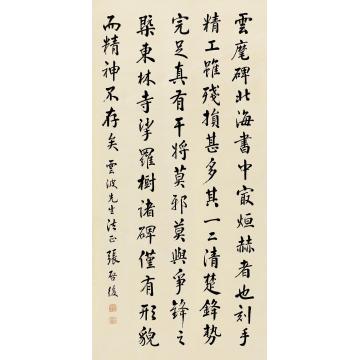 雲麾碑北海書中最烜赫者也刻手
精工雖殘損甚多其一二清楚鋒勢
完足真有干將莫邪莫與爭鋒之
槩東林寺娑羅樹諸碑僅有形貌
而精神不存矣 雲波先生法正 張啓後